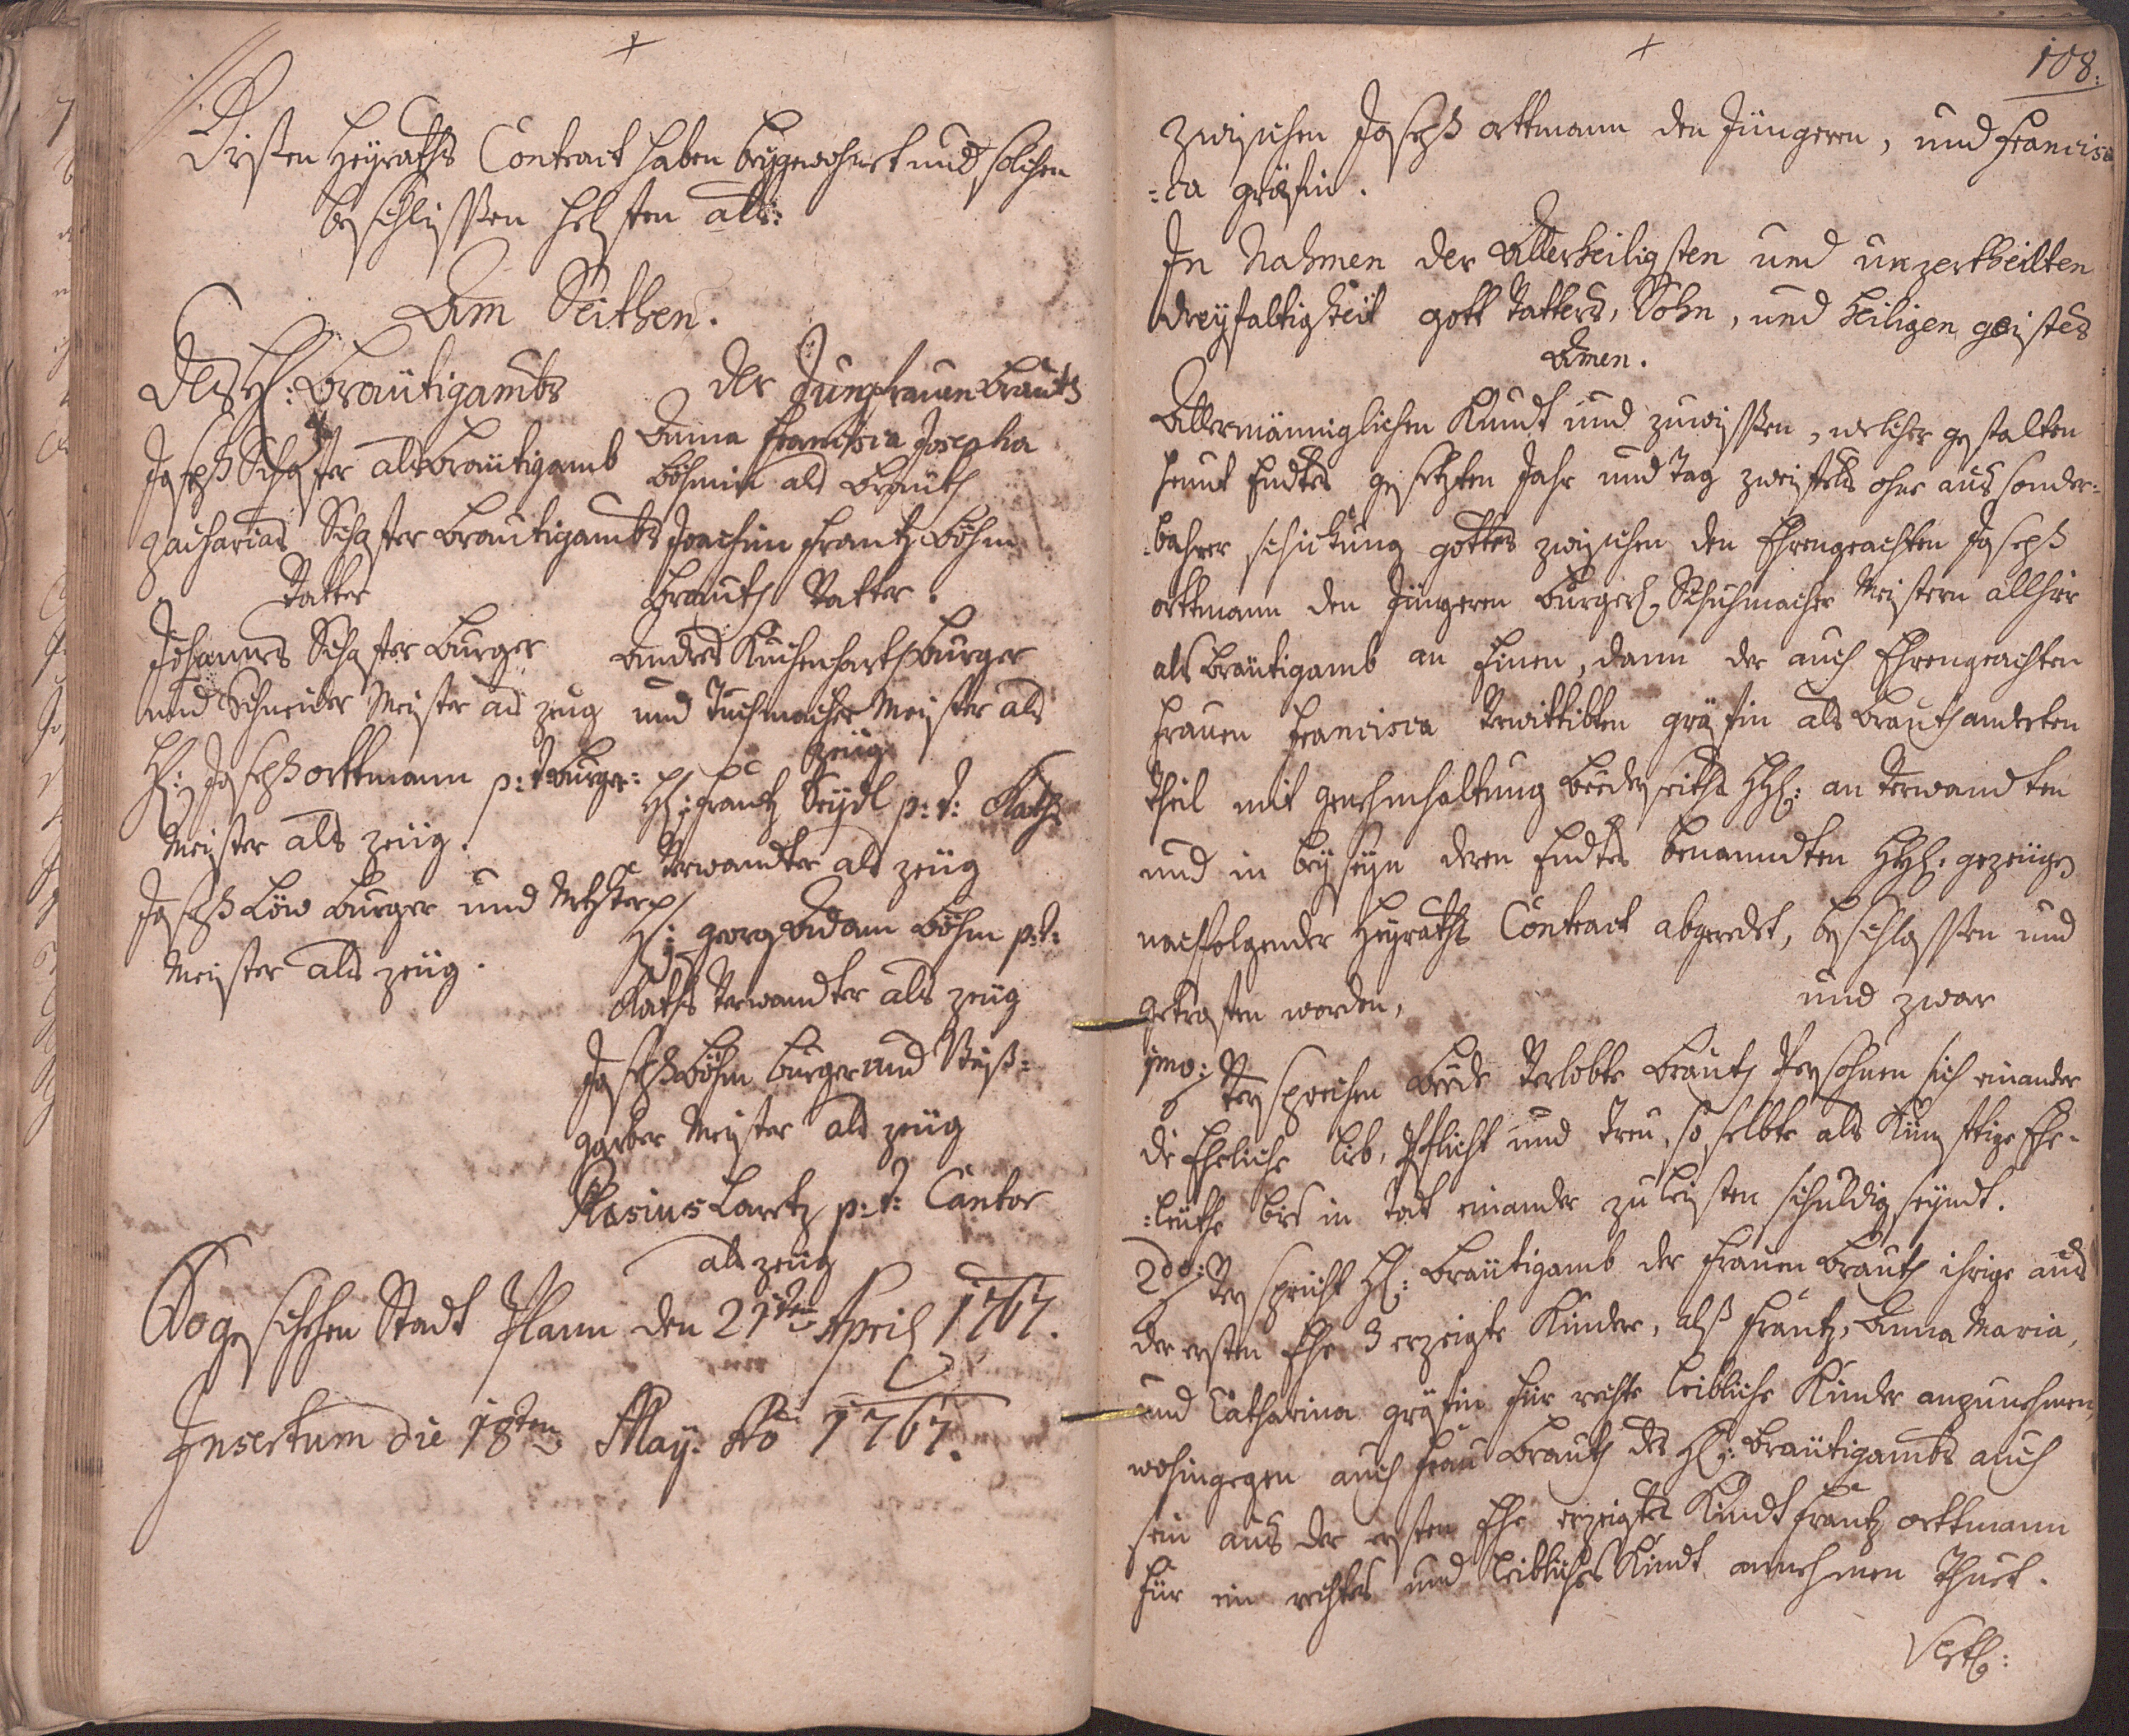 Diesen Heyraths Contract haben beygewohnet und solchen
beschlissen helffen als:
Am Seithen.
Des H: Bräutigambs
Joseph Schaffer als Bräutigamb
Zacharias Schaffer Brautigambs
Vatter
Johannes Schaffer Burger
und Schneider Meister als zeug
H: Joseph Ortmann p: t: Burger:
Meister als zeüg.
Joseph Löw Burger und
Meister als zeüg.
Der Jungfrauen Brauth
Anna Francisca Josepha
Böhmin als Brauth
Joachim Frantz Böhm
Brauth Vatter.
Andres Kuchenhart Burger
und Tuchmacher Meister als
zeüg
H: Frantz Seÿdl p: t: Raths
Verwandter als zeüg
H: Georg Adam Böhm p: t:
Raths Verwandter als zeüg
Joseph Böhm Burger und Weiß:
garber Meister als zeüg
Blasius Lartz p: t: Cantor
als zeüg
So geschehen Stadt Plann den 21ten April 1767.
Insertum die 18ten May: Ao 1767.
108:
Zwischen Joseph ortmann den Jüngeren, und Francis
:ca gräfin.
In Nahmen der Allerheiligsten und unzertheilten
Dreyfaltigkeit gott Vatters, Sohn, und heiligen geistes
Amen.
Allermänniglichen Kundt und zuwissen, welcher gestalten
heunt Endtes gesetzten Jahr und Tag zweiffels ohne aus sonder:
:bahrer schickung gottes zwischen den Ehrengeachten Joseph
ortmann den Jüngeren Burgerl. Schuhmacher Meistern allhier
als Bräutigamb an Einen, dann der auch Ehrengeachten
Frauen Francisca Verwittibten gräfin als Brauth anderten
Theil mit genehmhaltung beederseiths HH: an Verwandten
und in beyseyn deren Endtes benanndten HH: gezeügen
nachfolgender Heyraths Contract abgeredet, beschlossen und
getroffen worden, und zwar
1mo: Versprechen Beede Verlobte Brauth Persohnen sich einander
die Eheliche lieb, Pflicht und treu, so selbte als Künfftige Ehe-
:leüthe bis in Todt einander zu leisten schuldig seyndt.
2do: Verspricht H: Bräutigamb der Frauen Brauth ihrige aus
der ersten Ehe 3 erzeigte Kinder, alß Frantz, Anna Maria,
und Catharina gräfin für rechte leibliche Kinder anzunehmen,
wohingegen auch Frau Brauth des H: Bräutigambs auch
sein aus der ersten Ehe erzeigtes Kindt Frantz ortmann
für ein rechtes und leibliches Kindt annehmen thuet.